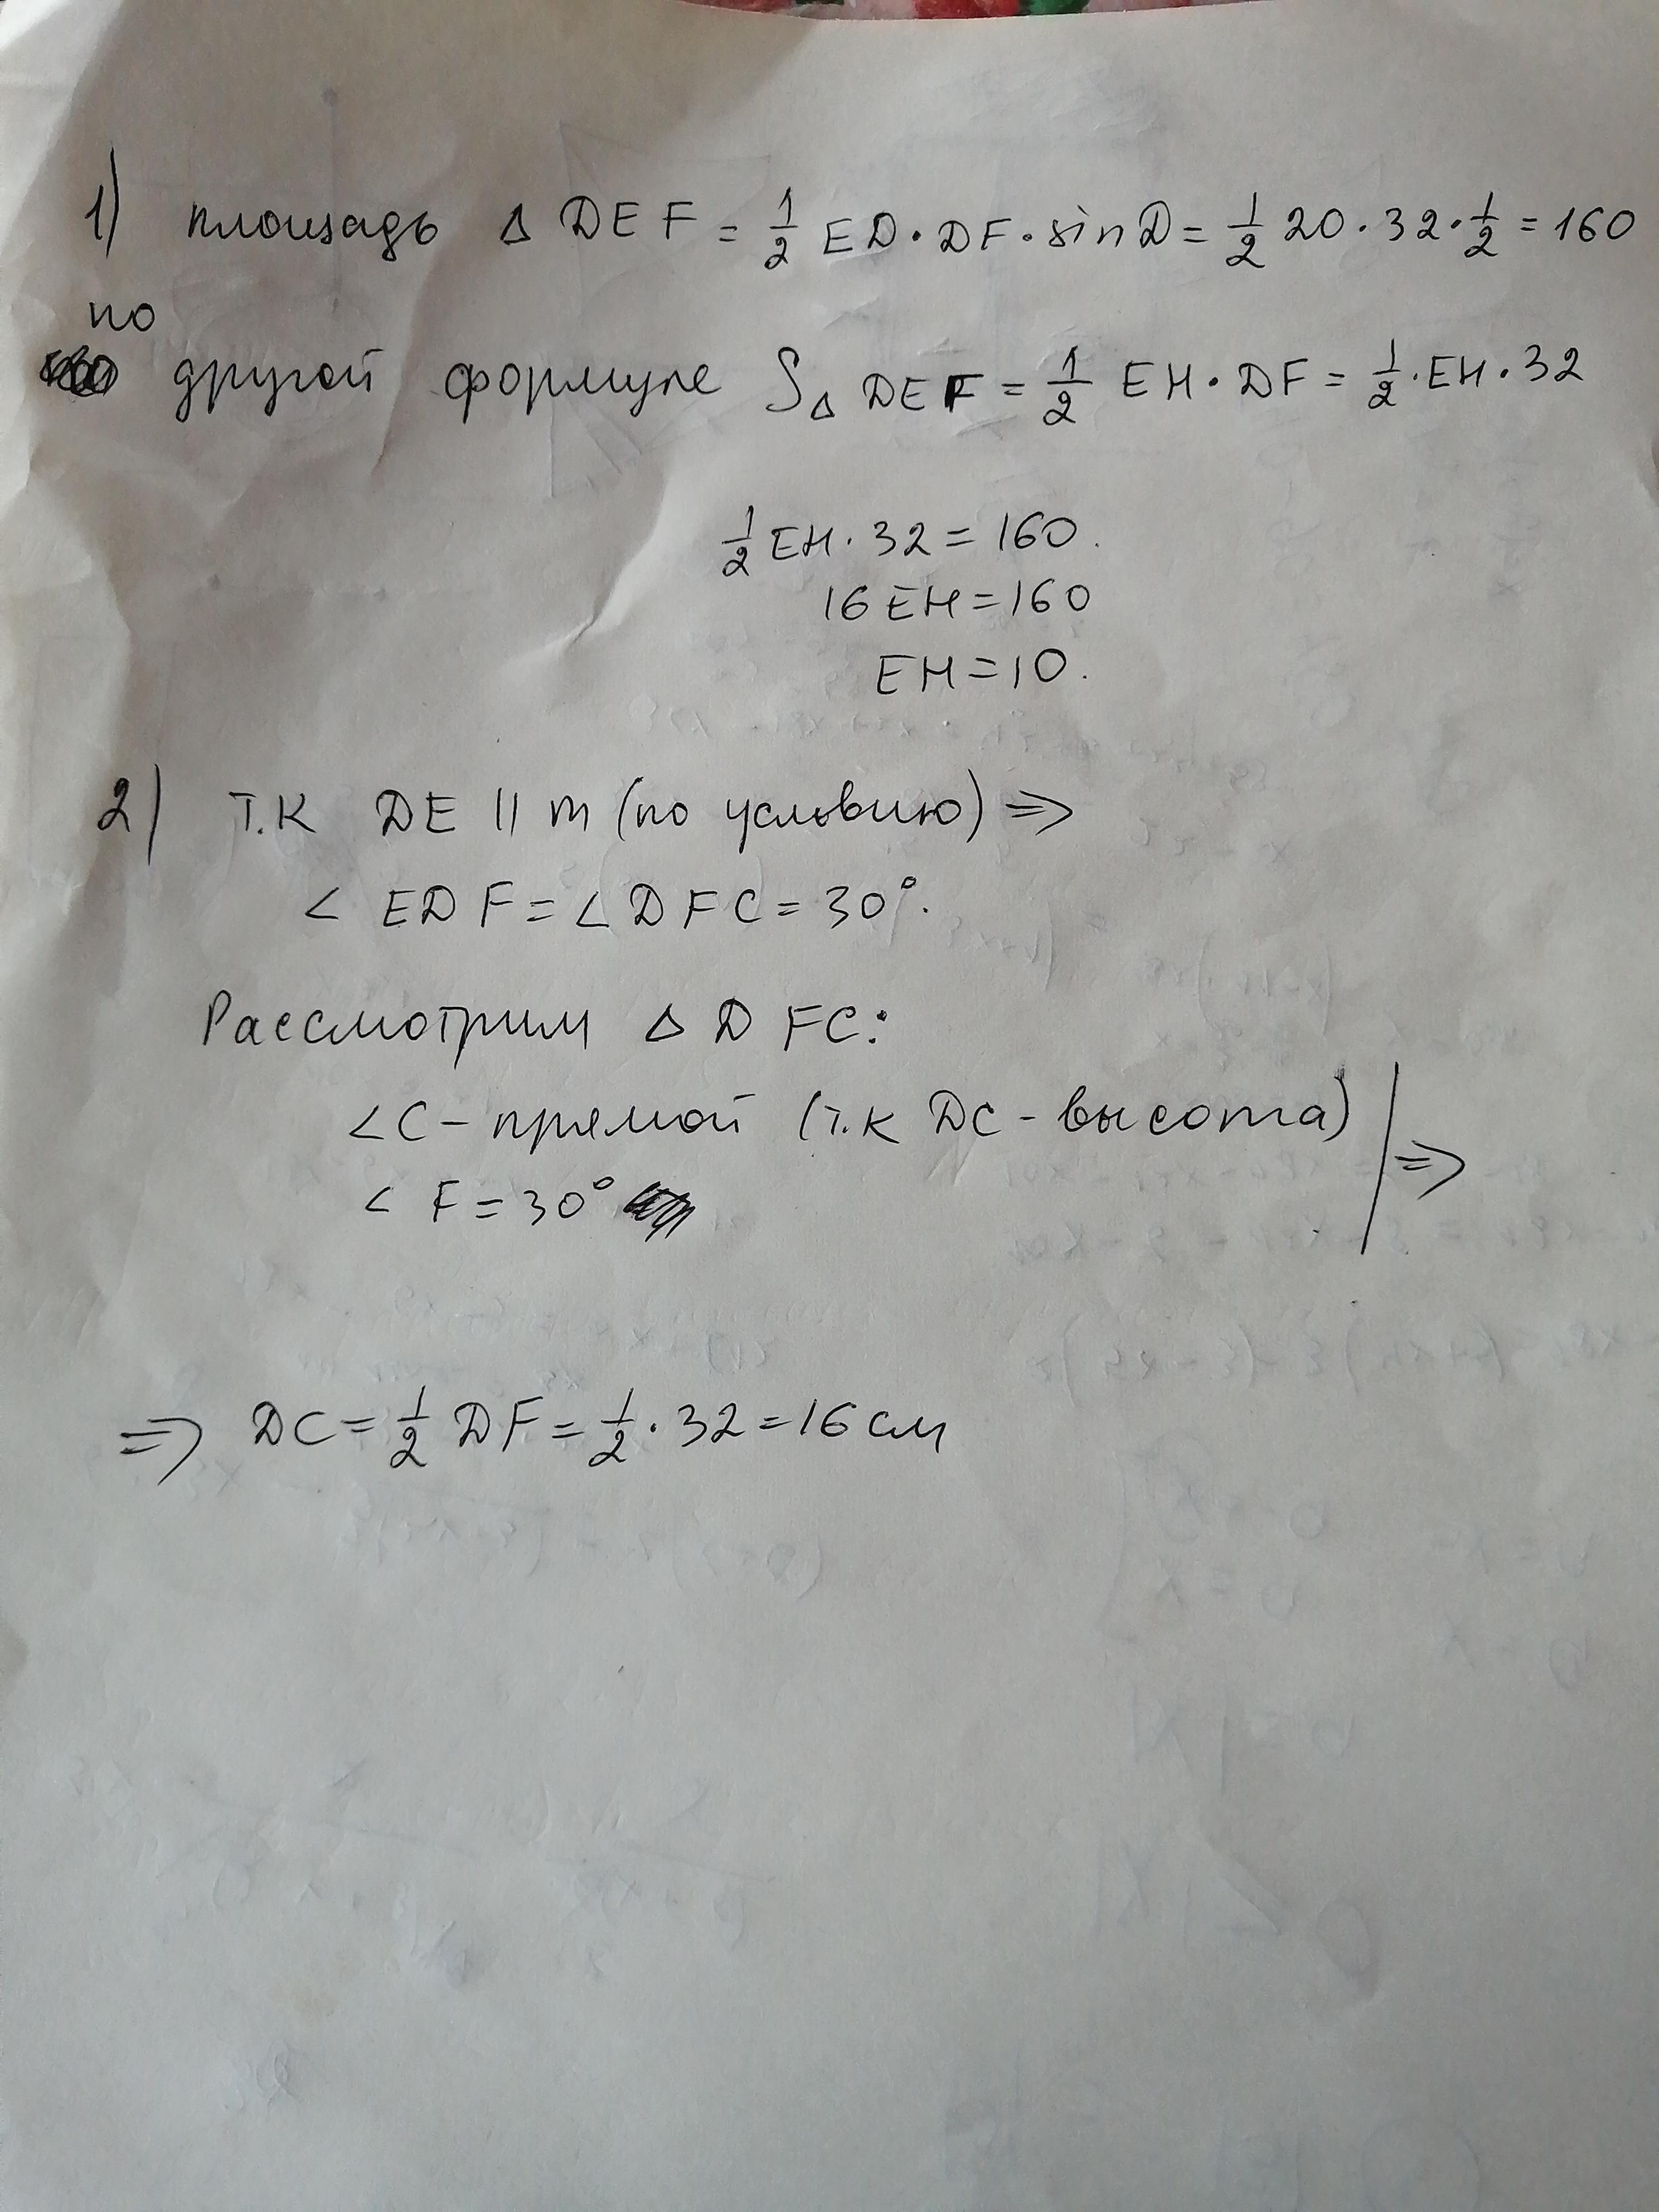 1) площадь Δ DEF = 1/2 ED · DF · sin D = 1/2 20 · 32 · 1/2 = 160
по
другой формуле S Δ DEF = 1/2 EH · DF = 1/2 · EH · 32
1/2 EH · 32 = 160.
16 EH = 160
EH = 10.
2) Т.К DE || m (по условию) ⇒
∠ EDF = ∠ DFC = 30°.
Рассмотрим Δ DFC:
∠C - прямой (т.к DC - высота) | ⇒
∠ F = 30°
⇒ DC = 1/2 DF = 1/2 · 32 = 16 см